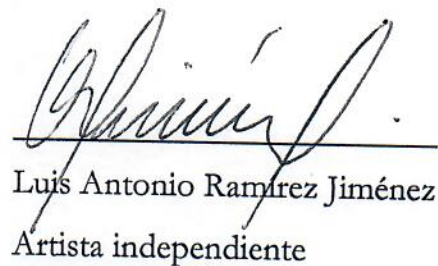 Luis Antonio Ramírez Jiménez
Artista independiente